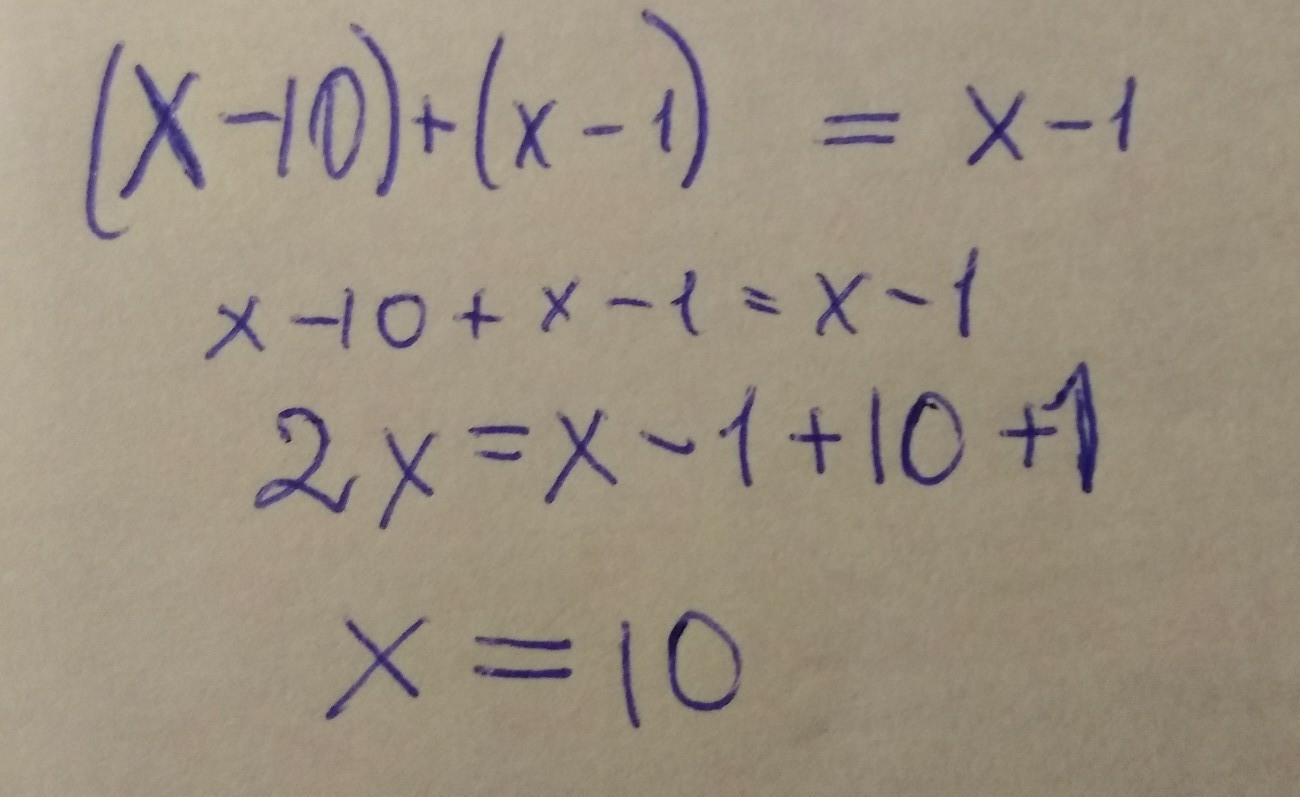 (x-10)+(x-1) = x-1
x-10+x-1=x-1
2x=x-1+10+1
x=10